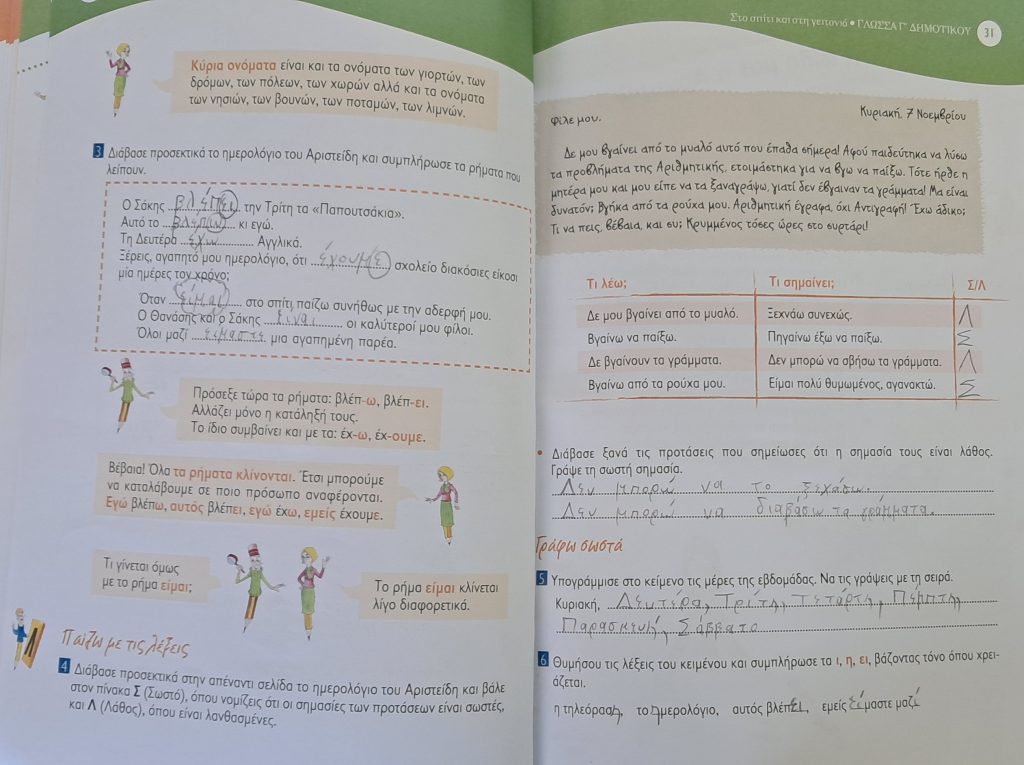 Κύρια ονόματα είναι και τα ονόματα των γιορτών, των
δρόμων, των πόλεων, των χωρών αλλά και τα ονόματα
των νησιών, των βουνών, των ποταμών, των λιμνών.
3 Διάβασε προσεκτικά το ημερολόγιο του Αριστείδη και συμπλήρωσε τα ρήματα που
λείπουν.
Ο Σάκης βλέπει την Τρίτη τα «Παπουτσάκια».
Αυτό το βλέπω κι εγώ.
Τη Δευτέρα έχω Αγγλικά.
Ξέρεις, αγαπητό μου ημερολόγιο, ότι έχουμε σχολείο διακόσιες είκοσι
μία ημέρες τον χρόνο;
Όταν είμαι στο σπίτι παίζω συνήθως με την αδερφή μου.
Ο Θανάσης και ο Σάκης είναι οι καλύτεροί μου φίλοι.
Όλοι μαζί είμαστε μια αγαπημένη παρέα.
Πρόσεξε τώρα τα ρήματα: βλέπ-ω, βλέπ-ει.
Αλλάζει μόνο η κατάληξή τους.
Το ίδιο συμβαίνει και με τα: έχ-ω, έχ-ουμε.
Βέβαια! Όλα τα ρήματα κλίνονται. Έτσι μπορούμε
να καταλάβουμε σε ποιο πρόσωπο αναφέρονται.
Εγώ βλέπω, αυτός βλέπει, εγώ έχω, εμείς έχουμε.
Τι γίνεται όμως
με το ρήμα είμαι;
Το ρήμα είμαι κλίνεται
λίγο διαφορετικά.
Παίζω με τις λέξεις
4 Διάβασε προσεκτικά στην απέναντι σελίδα το ημερολόγιο του Αριστείδη και βάλε
στον πίνακα Σ (Σωστό), όπου νομίζεις ότι οι σημασίες των προτάσεων είναι σωστές,
και Λ (Λάθος), όπου είναι λανθασμένες.
Στο σπίτι και στη γειτονιά • ΓΛΩΣΣΑ Γ΄ ΔΗΜΟΤΙΚΟΥ 31
Κυριακή, 7 Νοεμβρίου
Φίλε μου,
Δε μου βγαίνει από το μυαλό αυτό που έπαθα σήμερα! Αφού παιδεύτηκα να λύσω
τα προβλήματα της Αριθμητικής, ετοιμάστηκα για να βγω να παίξω. Τότε ήρθε η
μητέρα μου και μου είπε να τα ξαναγράψω, γιατί δεν έβγαιναν τα γράμματα! Μα είναι
δυνατόν; Βγήκα από τα ρούχα μου. Αριθμητική έγραφα, όχι Αντιγραφή! Έχω άδικο;
Τι να πεις, βέβαια, και συ; Κρυμμένος τόσες ώρες στο συρτάρι!
Τι λέω; Τι σημαίνει; Σ/Λ
Δε μου βγαίνει από το μυαλό. Ξεχνάω συνεχώς. Λ
Βγαίνω να παίξω. Πηγαίνω έξω να παίξω. Σ
Δε βγαίνουν τα γράμματα. Δεν μπορώ να σβήσω τα γράμματα. Λ
Βγαίνω από τα ρούχα μου. Είμαι πολύ θυμωμένος, αγανακτώ. Σ
• Διάβασε ξανά τις προτάσεις που σημείωσες ότι η σημασία τους είναι λάθος.
Γράψε τη σωστή σημασία.
Δεν μπορώ να το ξεχάσω.
Δεν μπορώ να διαβάσω τα γράμματα.
Γράφω σωστά
5 Υπογράμμισε στο κείμενο τις μέρες της εβδομάδας. Να τις γράψεις με τη σειρά.
Κυριακή, Δευτέρα, Τρίτη, Τετάρτη, Πέμπτη
Παρασκευή, Σάββατο
6 Θυμήσου τις λέξεις του κειμένου και συμπλήρωσε τα ι, η, ει, βάζοντας τόνο όπου χρει-
άζεται.
η τηλεόραση, το ημερολόγιο, αυτός βλέπει, εμείς είμαστε μαζί